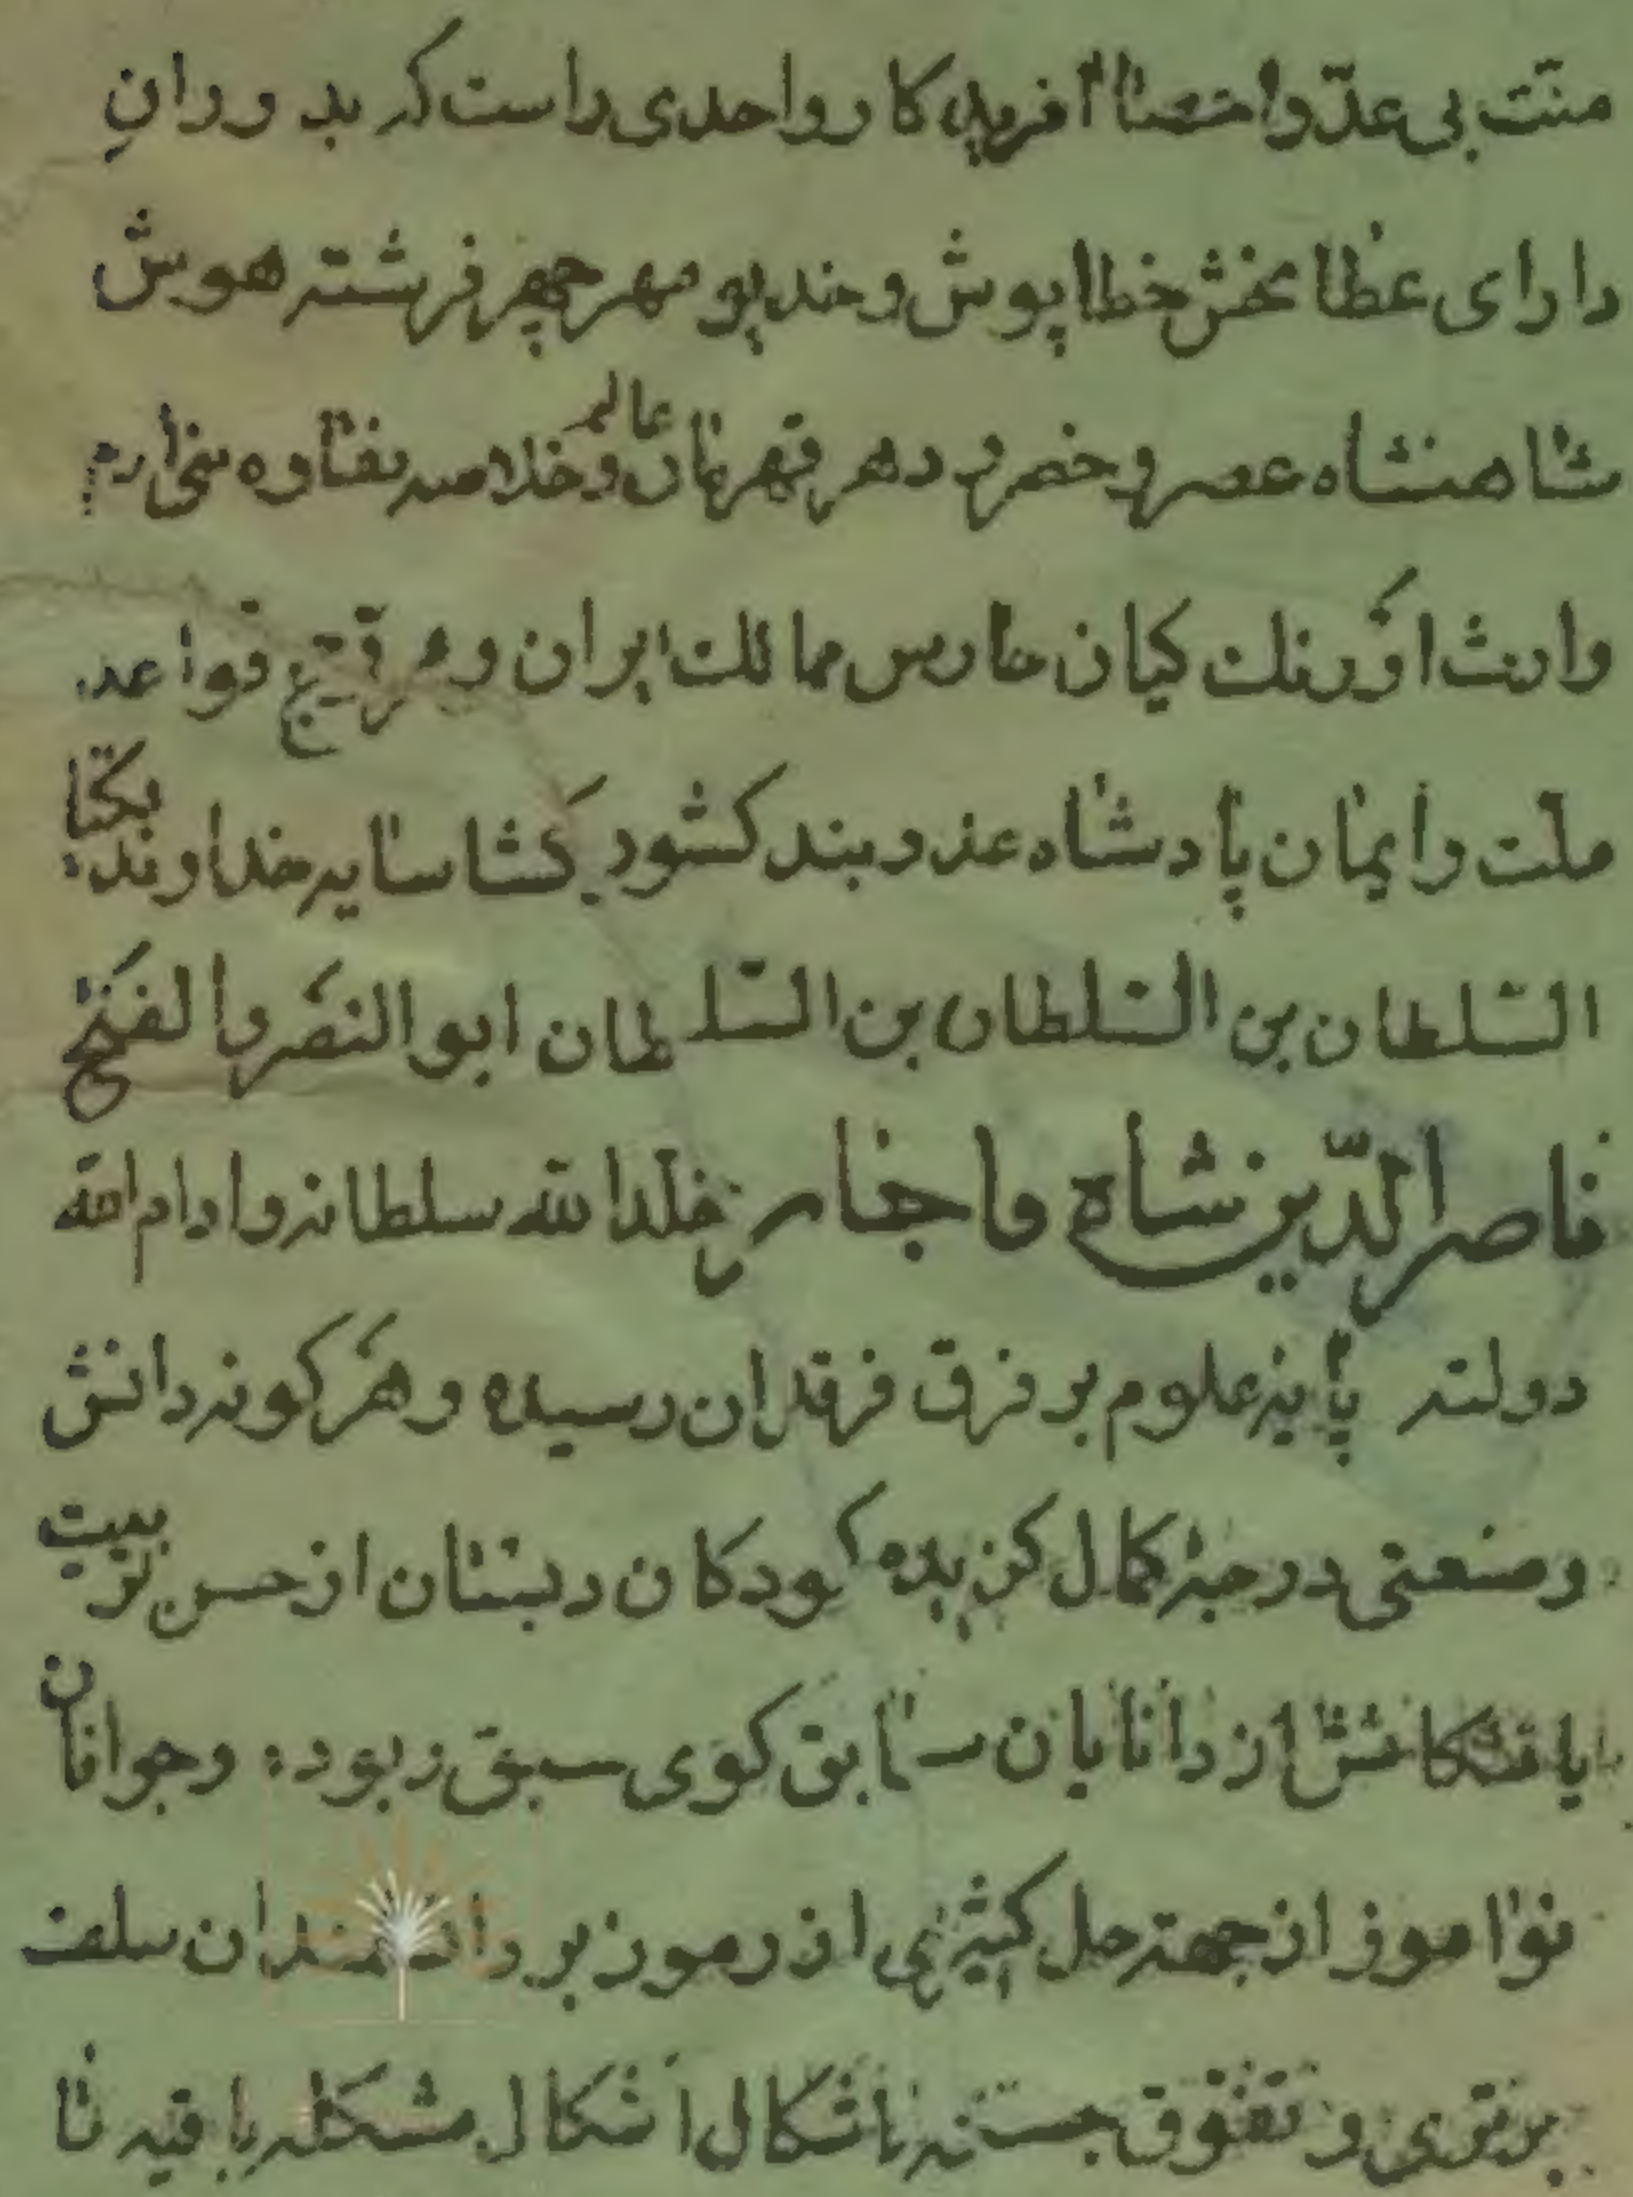 منّت بی عدّ و احصا آفریدکار واحدی راست که بدورانِ
دارای عطا بخش خطا پوش و خدیو مهر چهر فرشته هوش
شاهنشاه عصر و خضر دهر قهرمان عالم و خلاصه نقاوه
وارث اورنك کیان حارس ممالك ایران و مروّج قواعد
ملّت و ایمان پادشاه عدو بند کشور کشا سایه خداوند یکتا
السّلطان بن السّلطان بن السّلطان ابو النصر و الفتح
ناصر الدّین شاه قاجار خلّد الله سلطانه و ادام الله
دولته پایهٔ علوم بر فرق فرقدان رسیده و هر کونه دانش
و صنعتی درجهٔ کمال کزیده کودکان دبستان از حسن تربیت
یافتکانش از دانایان سابق کوی سبق ربوده و جوانان
نوآموز از جهة حل کثیری از رموز بر دانشمندان سلف
برتری و تفوّق جسته با شکال اشکال مشکله باقیه تا